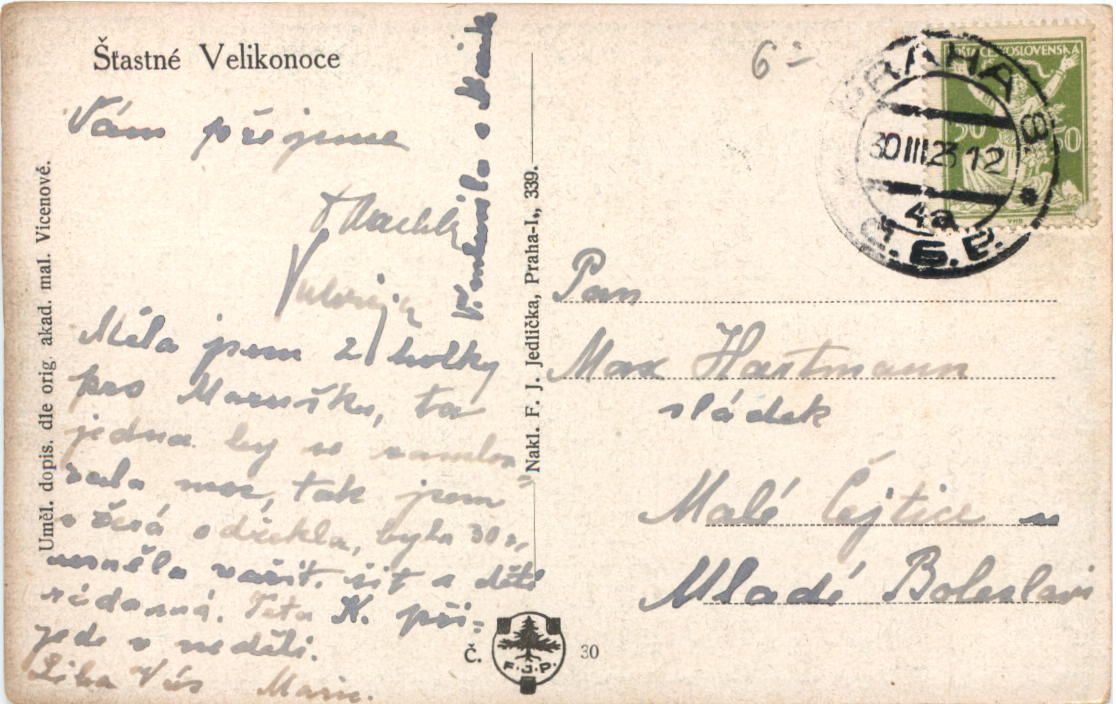 Šťastné Velikonoce
Vám přejeme
Měla jsem 2 holky
pro Marušku, ta
jedna by se zamlou-
vala moc, tak jsem
včerá odřekla, byla 30 r,
uměla vařit. šít a děti
ráda má. Teta K. při-
jede v neděli.
Líbá Vás Marie.
Uměl. dopis. dle orig. akad. mal. Vicenové.
Nakl. F. J. Jedlička, Praha-I., 339.
Č. 30
F.J.P.
6-
POŠTA ČESKOSLOVENSKÁ
50 50
PRAHA 8.
30 III 23 12
4a
Pan
Max Hartmann
sládek
Malé Čejtice u
Mladé Boleslavi